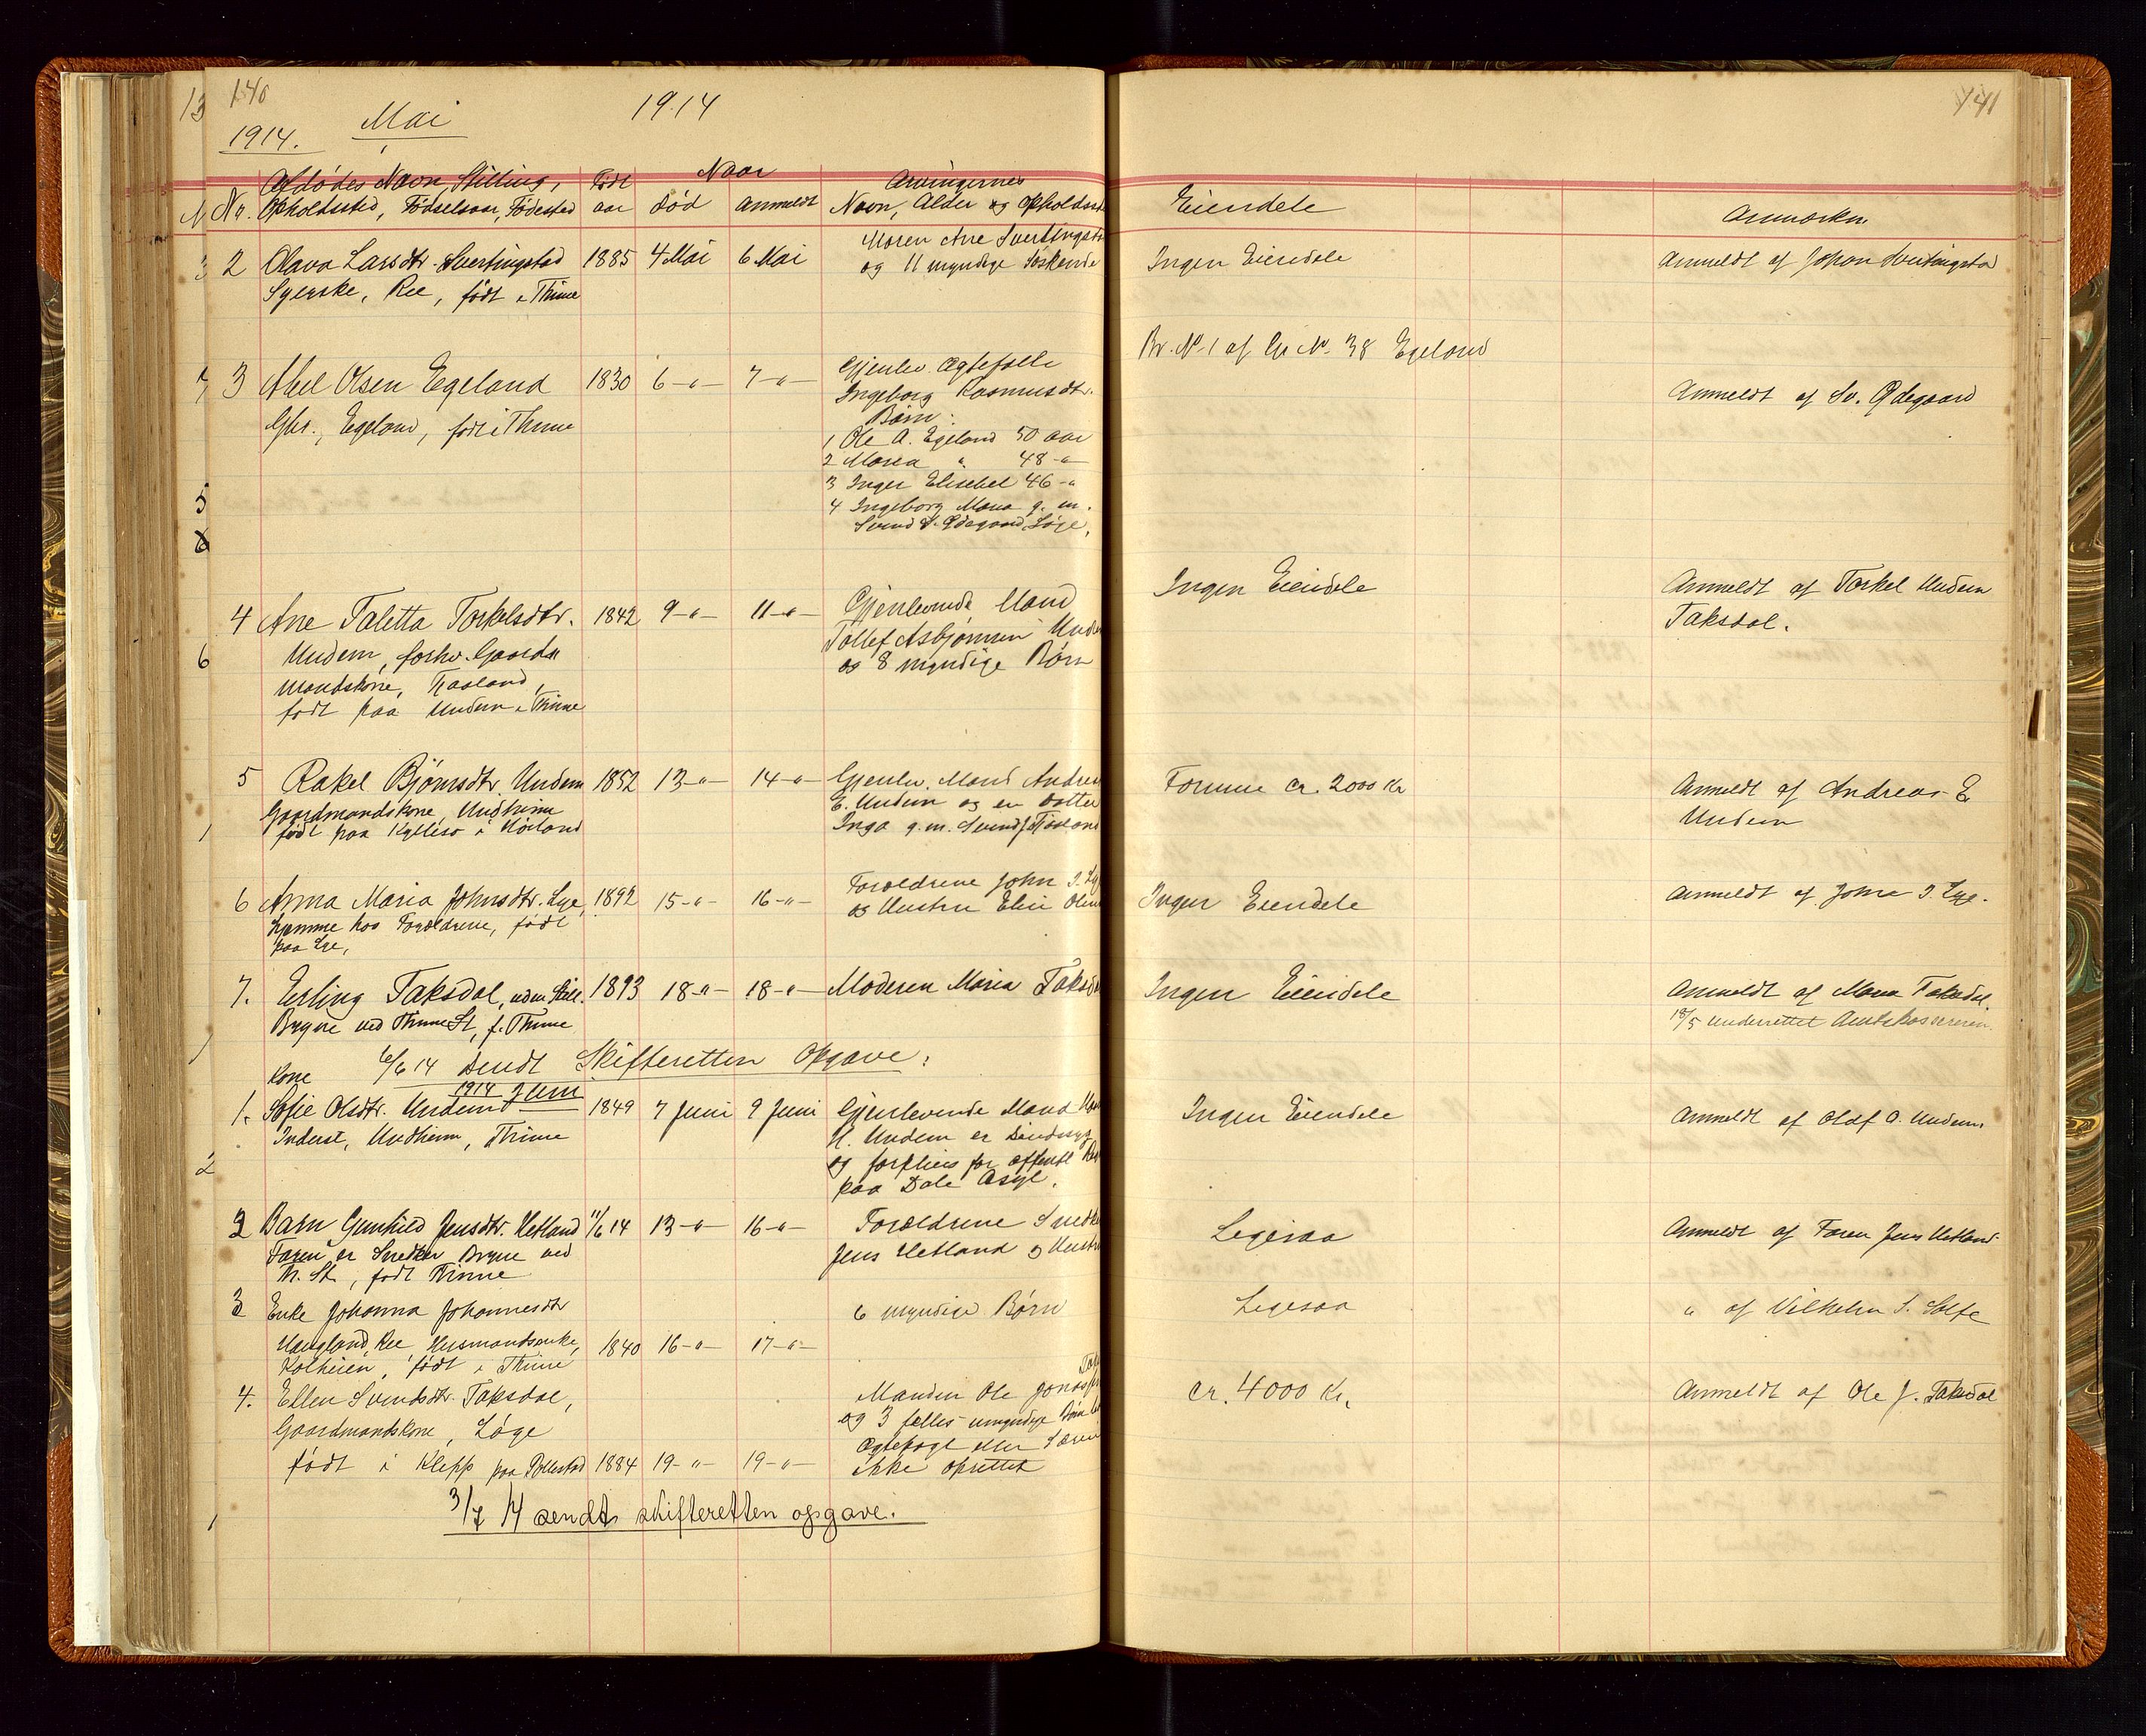 140
1914.
Mai
1914
141
Afdødes Navn, Stilling,
Opholdssted, Fødselsaar, Fødested
Nr.
Født
aar
Naar
død
anmeldt
Arvingernes
Navn, Alder og Opholdsst
Eiendele
Anmærkn.
2 Olava Larsdtr. Svertingstad 1885 4 Mai 6 Mai
Syerske, Ree, født i Thime
Moren Ane Svertingsta
og 11 myndige Søskende
Ingen Eiendele
Anmeldt af Johan Svertingstad
3 Abel Olsen Egeland 1830 6 -"- 7 -"-
Gbr., Egeland, født i Thime
Gjenlev. Ægtefælle
Ingeborg Rasmusdtr.
Børn:
1 Ole A. Egeland 50 aar
2 Maria " 48 -"-
3 Inger Elisebet 46 -"
4 Ingeborg Maria g. m.
Svend S. Ødegaard, Løge,
Br. No. 1 af Gr. No. 38 Egeland
Anmeldt af Sv. Ødegaard
4 Ane Taletta Torkelsdtr. 1842 9 -"- 11 -"-
Undem, forhv. Gaard
mandskone, Træland,
født paa Undem i Thime
Gjenlevende Mand
Tollef Asbjørnsen Unde
og 8 myndige Børn
Ingen Eiendele
Anmeldt af Torkel Undem
Taksdal.
5 Rakel Bjørnsdtr. Undem 1852 13 -"- 14 -"-
Gaardmandskone, Undheim
født paa Kylleso i Høiland
Gjenlev. Mand Andrea
E. Undem og en Datter
Inga g. m. Svend J.
Formue ca. 2000 Kr
Anmeldt af Andreas E
Undem
6 Anna Maria Johnsdtr. Lye, 1892 15 -"- 16 -"-
hjemme hos Forældrene, født
paa Lye,
Forældrene John J. Ly
og Hustru Elen
Ingen Eiendele
Anmeldt af John J. Lye.
7. Erling Taksdal, uden Still. 1893 18 -"- 18 -"-
Bryne ved Thime St, f. Thime
Moderen Maria Taksd
Ingen Eiendele
Anmeldt af Maria Taksdal
18/5 underrettet Amtskassereren
6/6 14 sendt Skifteretten Opgave:
1914 Juni
Kone
1. Sofie Olsdtr. Undem 1849 7 Juni 9 Juni
Inderst, Undheim, Thime
Gjenlevende Mand
H. Undem er Sindssyg
og forpleies for offentl
paa Dale Asyl.
Ingen Eiendele
Anmeldt af Olaf A. Undem.
2 Barn Gunhild Jensdtr. Hetland 11/6 14 13 -"- 16 -"-
Faren er Snedker Bryne ved
Th. St, født Thime
Forældrene Snedk
Jens Hetland og Hustru
Ligesaa
Anmeldt af Faren Jens Hetland
3 Enke Johanna Johannesdtr
Haugland, Ree, Husmandsenke, 1840 16 -"- 17 -"-
Kolheien, født i Thime
6 myndige Børn
Ligesaa
" af Vilhelm S.
4. Ellen Svendsdtr. Taksdal,
Gaardmandskone, Løge
født i Klepp paa Pollestad 1884 19 -"- 19 -"-
Manden Ole Jonass
og 3 fælles umyndige Børn
Ægtepagt eller Særei
ikke oprettet
ca. 4000 Kr.
Anmeldt af Ole J. Taksdal
3/7 14 sendt skifteretten opgave.